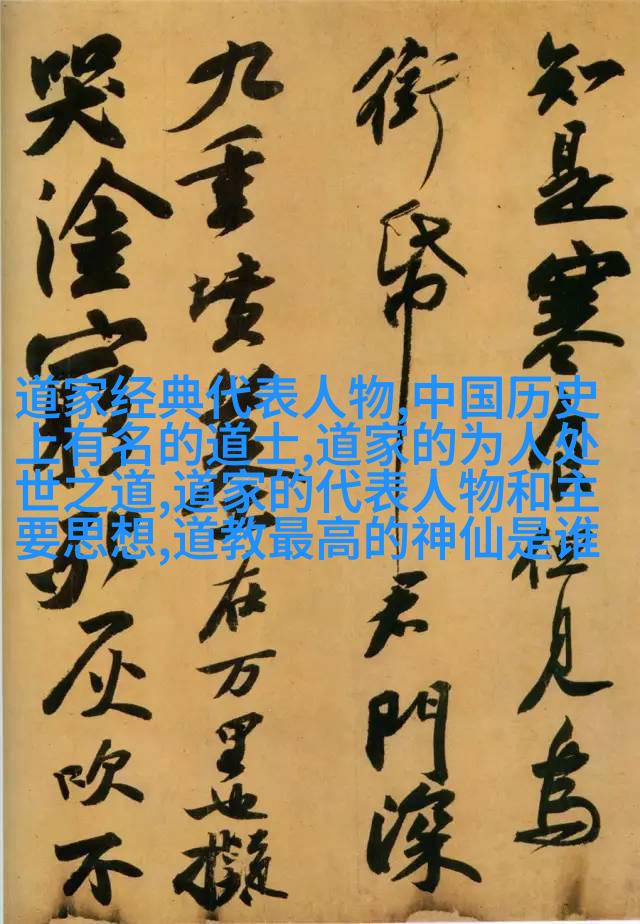 知是寒食但見烏
銜帋君門深
九重墳墓在万里也擬
哭塗窮死灰吹不
道家经典代表人物,中国历史
上有名的道士,道家的为人处
世之道,道家的代表人物和主
要思想,道教最高的神仙是谁